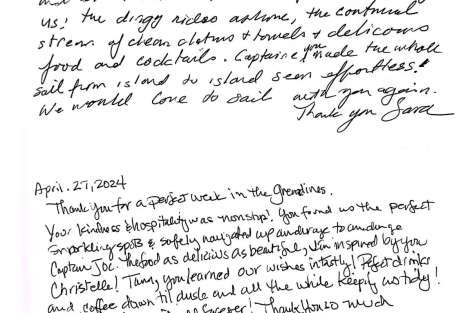 us! the dingy rides ashore, the continual
stream of clean clothes & towels & delicious
food and cocktails. Captaine you made the whole
sail from island to island seem effortless!
We would love to sail with you again.
Thank you Sara
April. 27, 2024
Thank you for a perfect week in the Grenadines.
Your kindness & hospitality was nonstop! You found us the perfect
snorkling spots & safely navigated up anchorage to anchorage
Captain Joe. The food as delicius as beautiful, I'm inspired by you
Christelle! you learned our wishes instantly! Perfect drinks
and coffee dawn til dusk and all the while keeping us tidy!
forever! Thank you so much